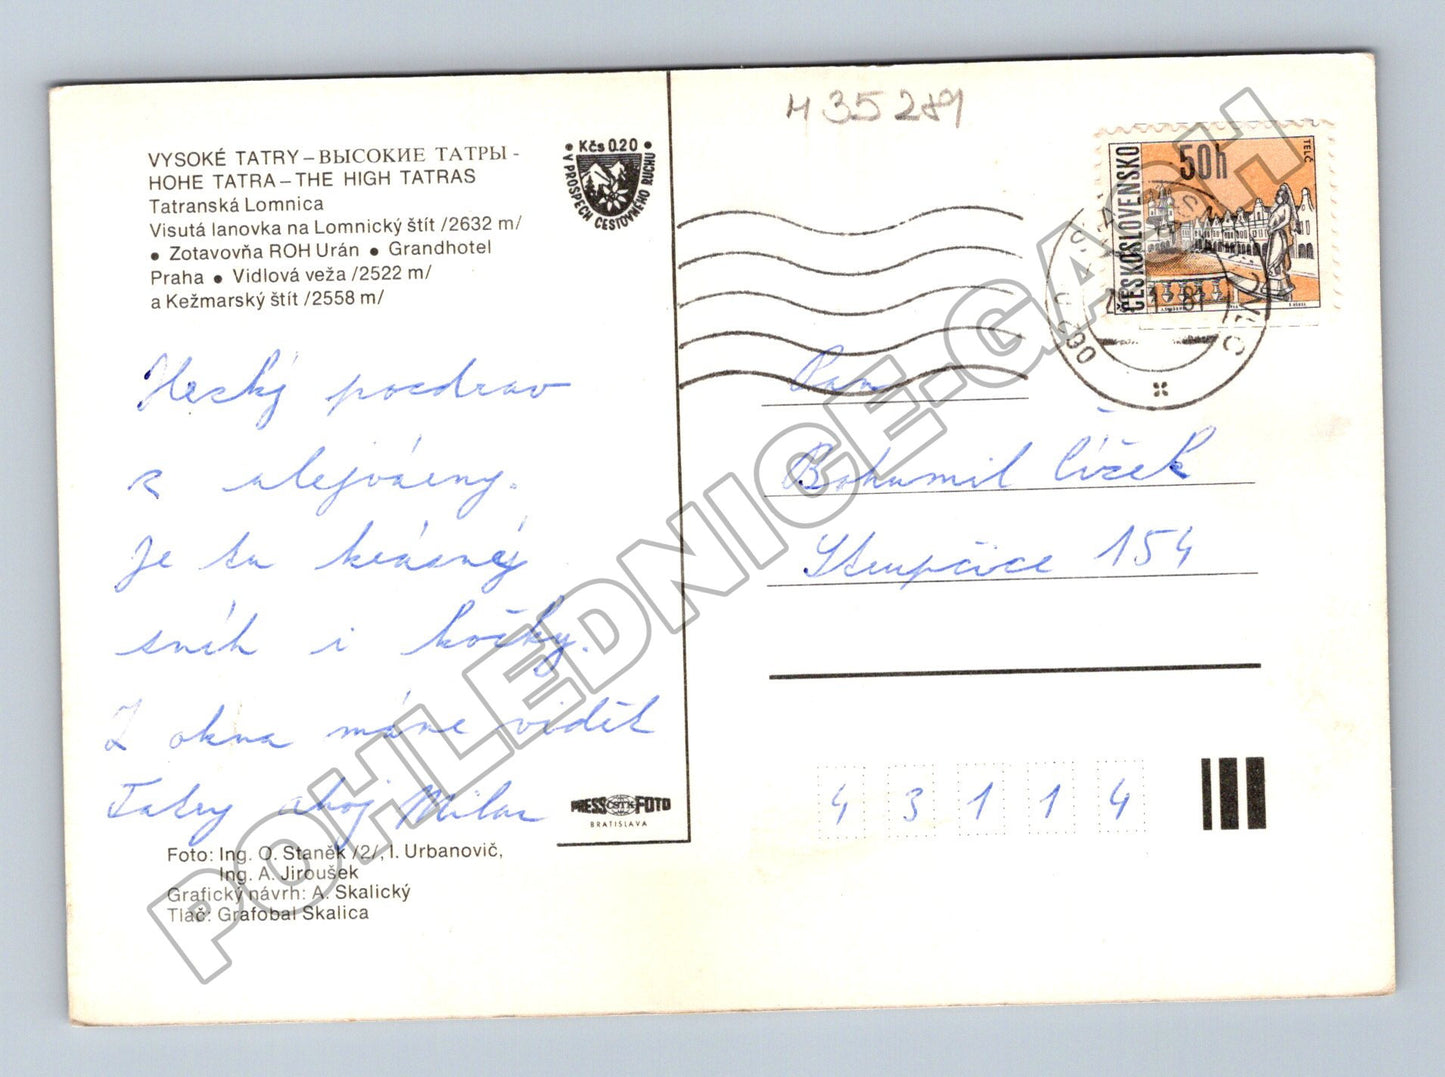 M 35289
VYSOKÉ TATRY – ВЫСОКИЕ ТАТРЫ -
HOHE TATRA – THE HIGH TATRAS
Tatranská Lomnica
Visutá lanovka na Lomnický štít /2632 m/
● Zotavovňa ROH Urán ● Grandhotel
Praha ● Vidlová veža /2522 m/
a Kežmarský štít /2558 m/
● Kčs 0.20 ●
V PROSPECH CESTOVNÉHO RUCHU
ČESKOSLOVENSKO
50h
TELČ
Hezký pozdrav
z
Je tu krásný
sníh i kočky.
Z okna máme vidět
Tatry ahoj Milan
Pan
Bohumil Čížek
Stupčice 154
4 3 1 1 4
PRESS ČSTK FOTO
BRATISLAVA
Foto: Ing. O. Staněk /2/, I. Urbanovič,
Ing. A. Jiroušek
Grafický návrh: A. Skalický
Tlač: Grafobal Skalica
POHLEDNICE.CASH